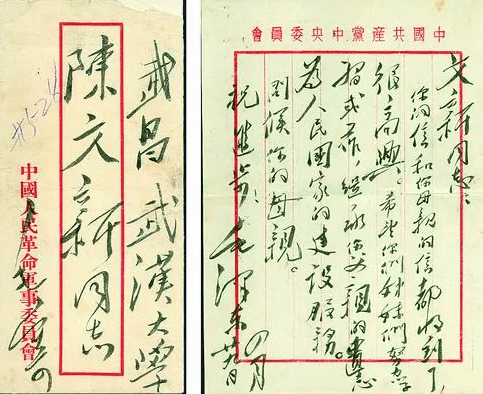 武昌武漢大學
陳文新同志
中國人民革命軍事委員會
中國共產黨中央委員會
文新同志：
你的信和你母親的信都收到了，
很高興。希望你们姊妹们努力学
習或工作，继承你父親的遺志
為人民國家的建設服務。
问候你的母親。
祝進步！
毛澤東
四月
廿九日